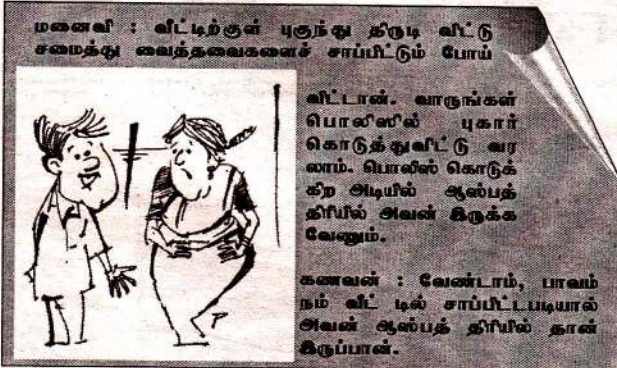 மனைவி : வீட்டிற்குள் புகுந்து திருடி விட்டு
சமைத்து வைத்தவைகளைச் சாப்பிட்டும் போய்
விட்டான். வாருங்கள்
பொலிஸில் புகார்
கொடுத்துவிட்டு வர
லாம். பொலிஸ் கொடுக்
கிற அடியில் ஆஸ்பத்
திரியில் அவன் இருக்க
வேணும்.
கணவன் : வேண்டாம், பாவம்
நம் வீட் டில் சாப்பிட்டபடியால்
அவன் ஆஸ்பத் திரியில் தான்
இருப்பான்.